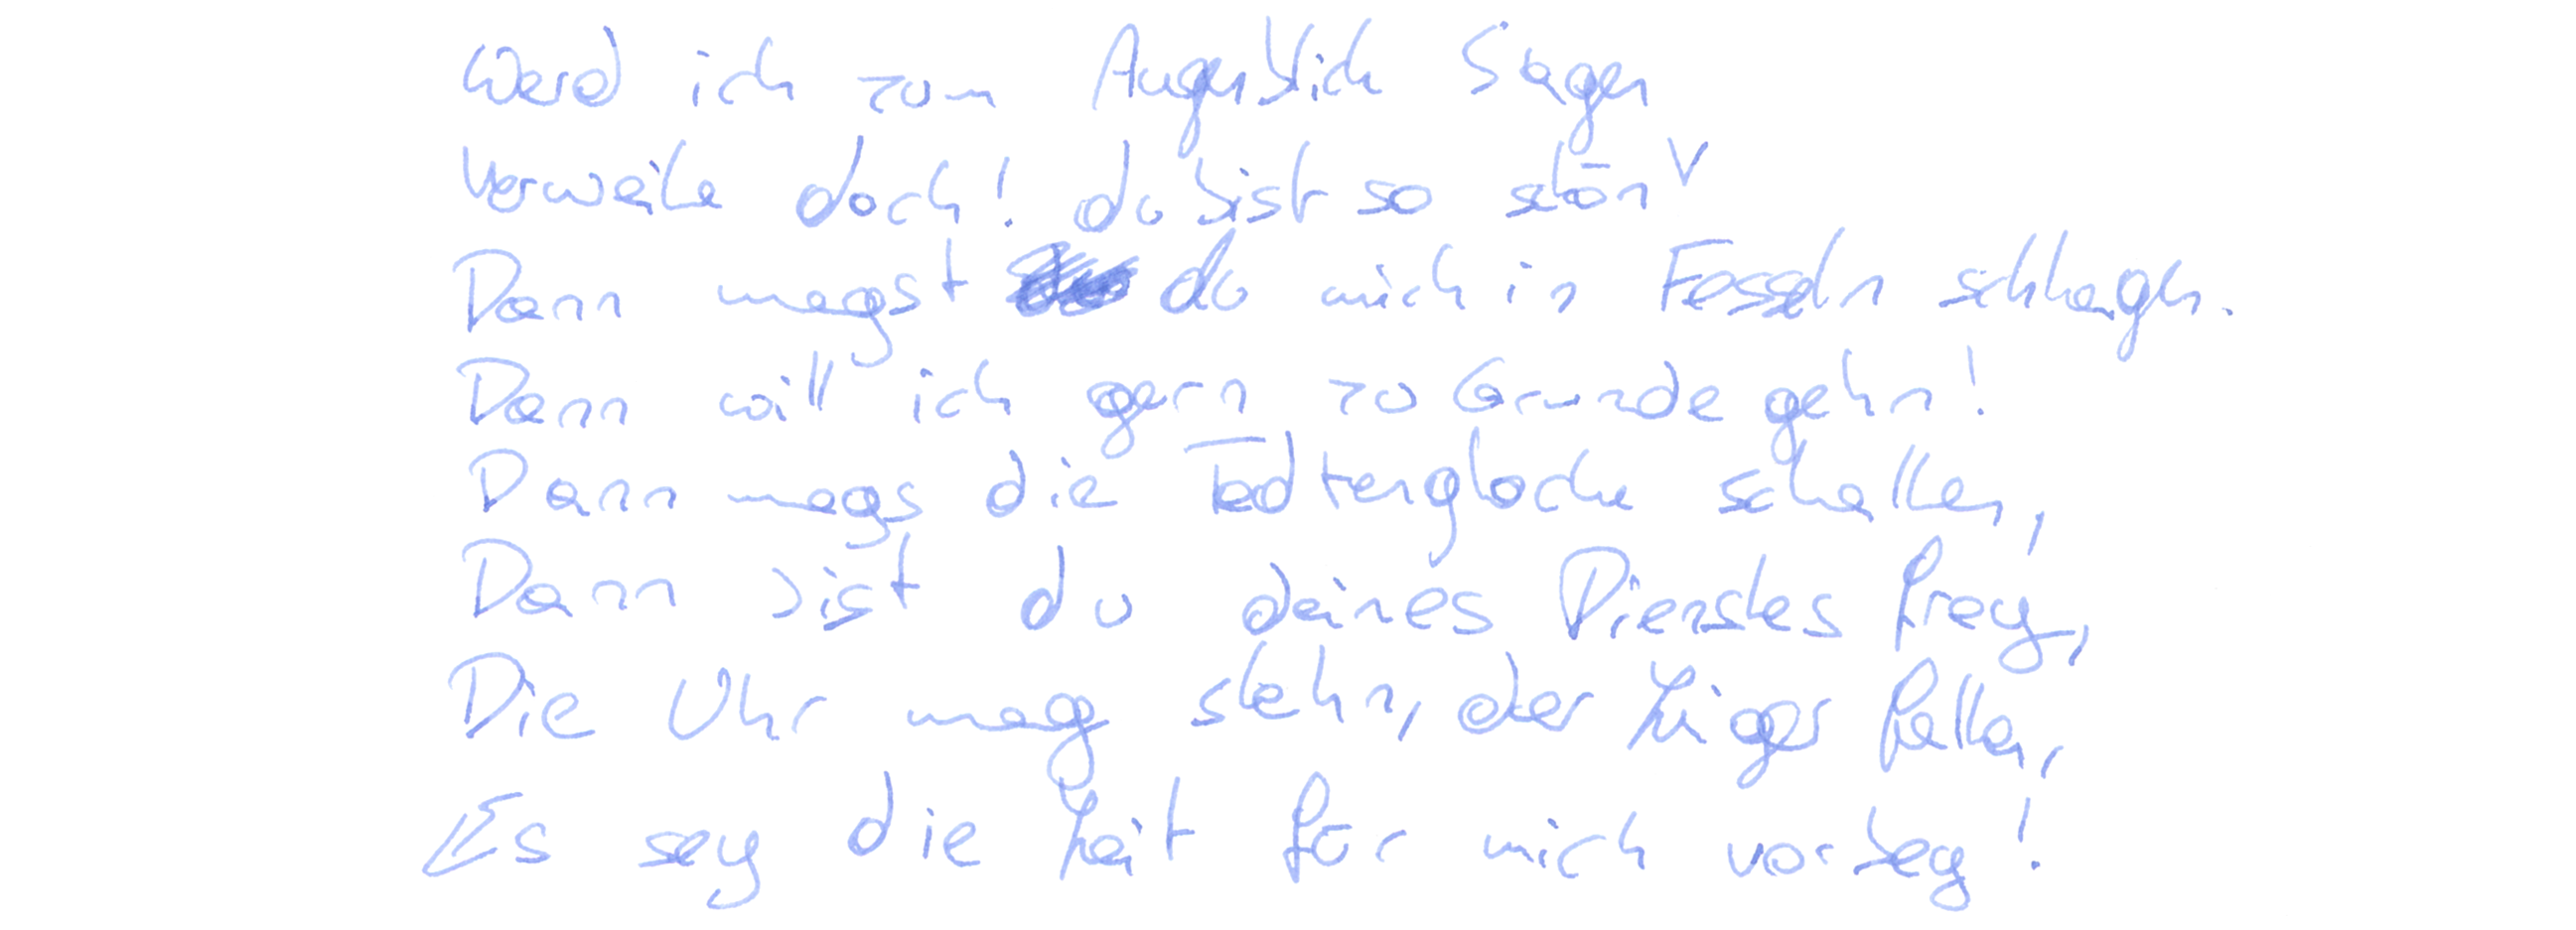 Werd ich zum Augenblick sagen
Verweile doch! du bist so schön
Dann magst du mich in Fesseln schlagen.
Dann will ich gern zu Grunde gehn!
Dann mags die Todtenglocke schallen,
Dann bist du deines Dienstes frey,
Die Uhr mag stehn, der Zeiger fallen,
Es sey die Zeit für mich vorbey!